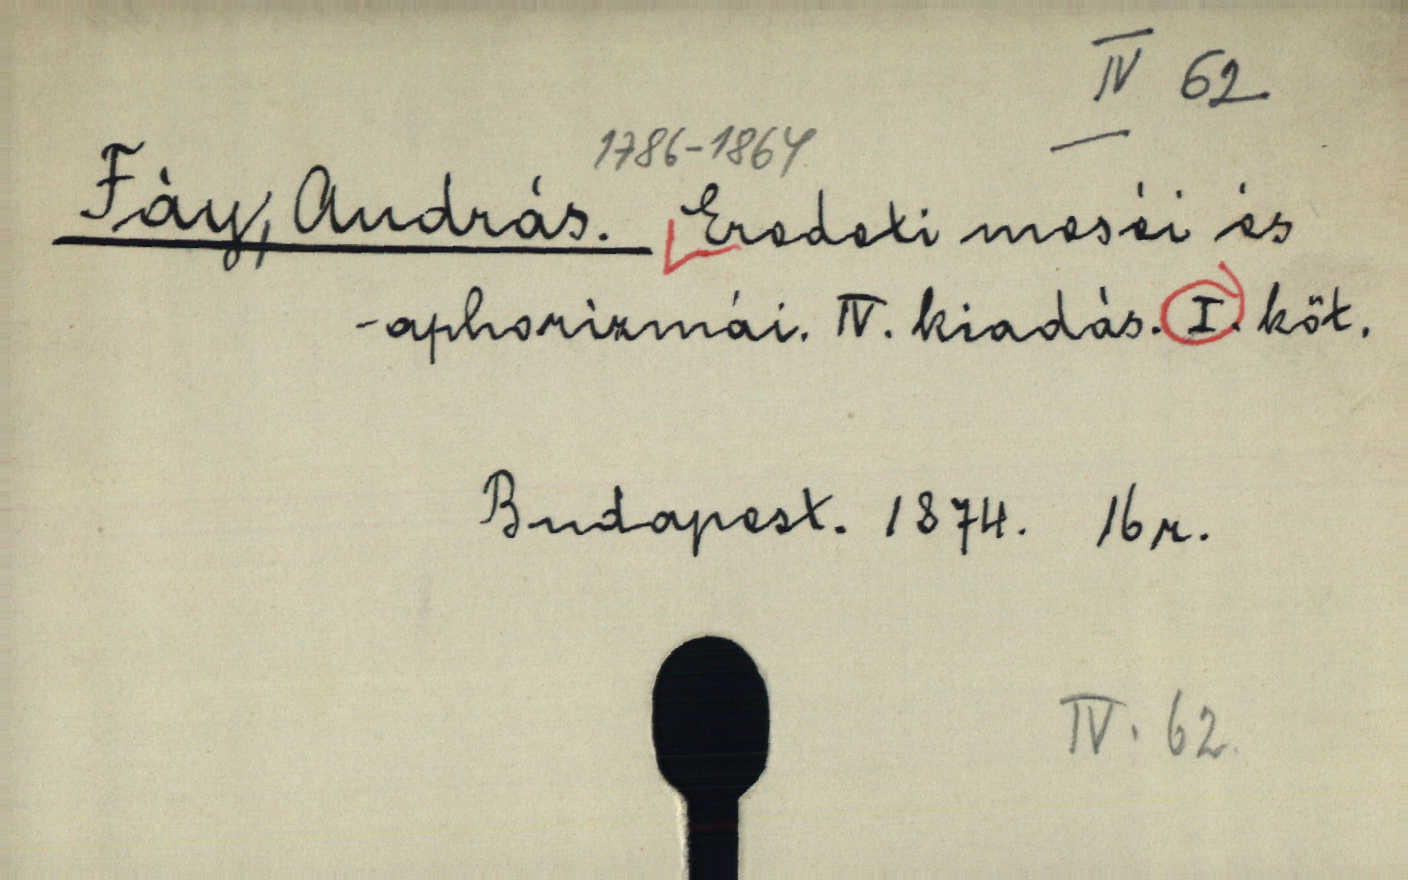 IV 62
1786-1864
Fáy, András. Eredeti meséi és
-aphorizmái. IV. kiadás. I. köt.
Budapest. 1874. 16 r.
IV. 62.